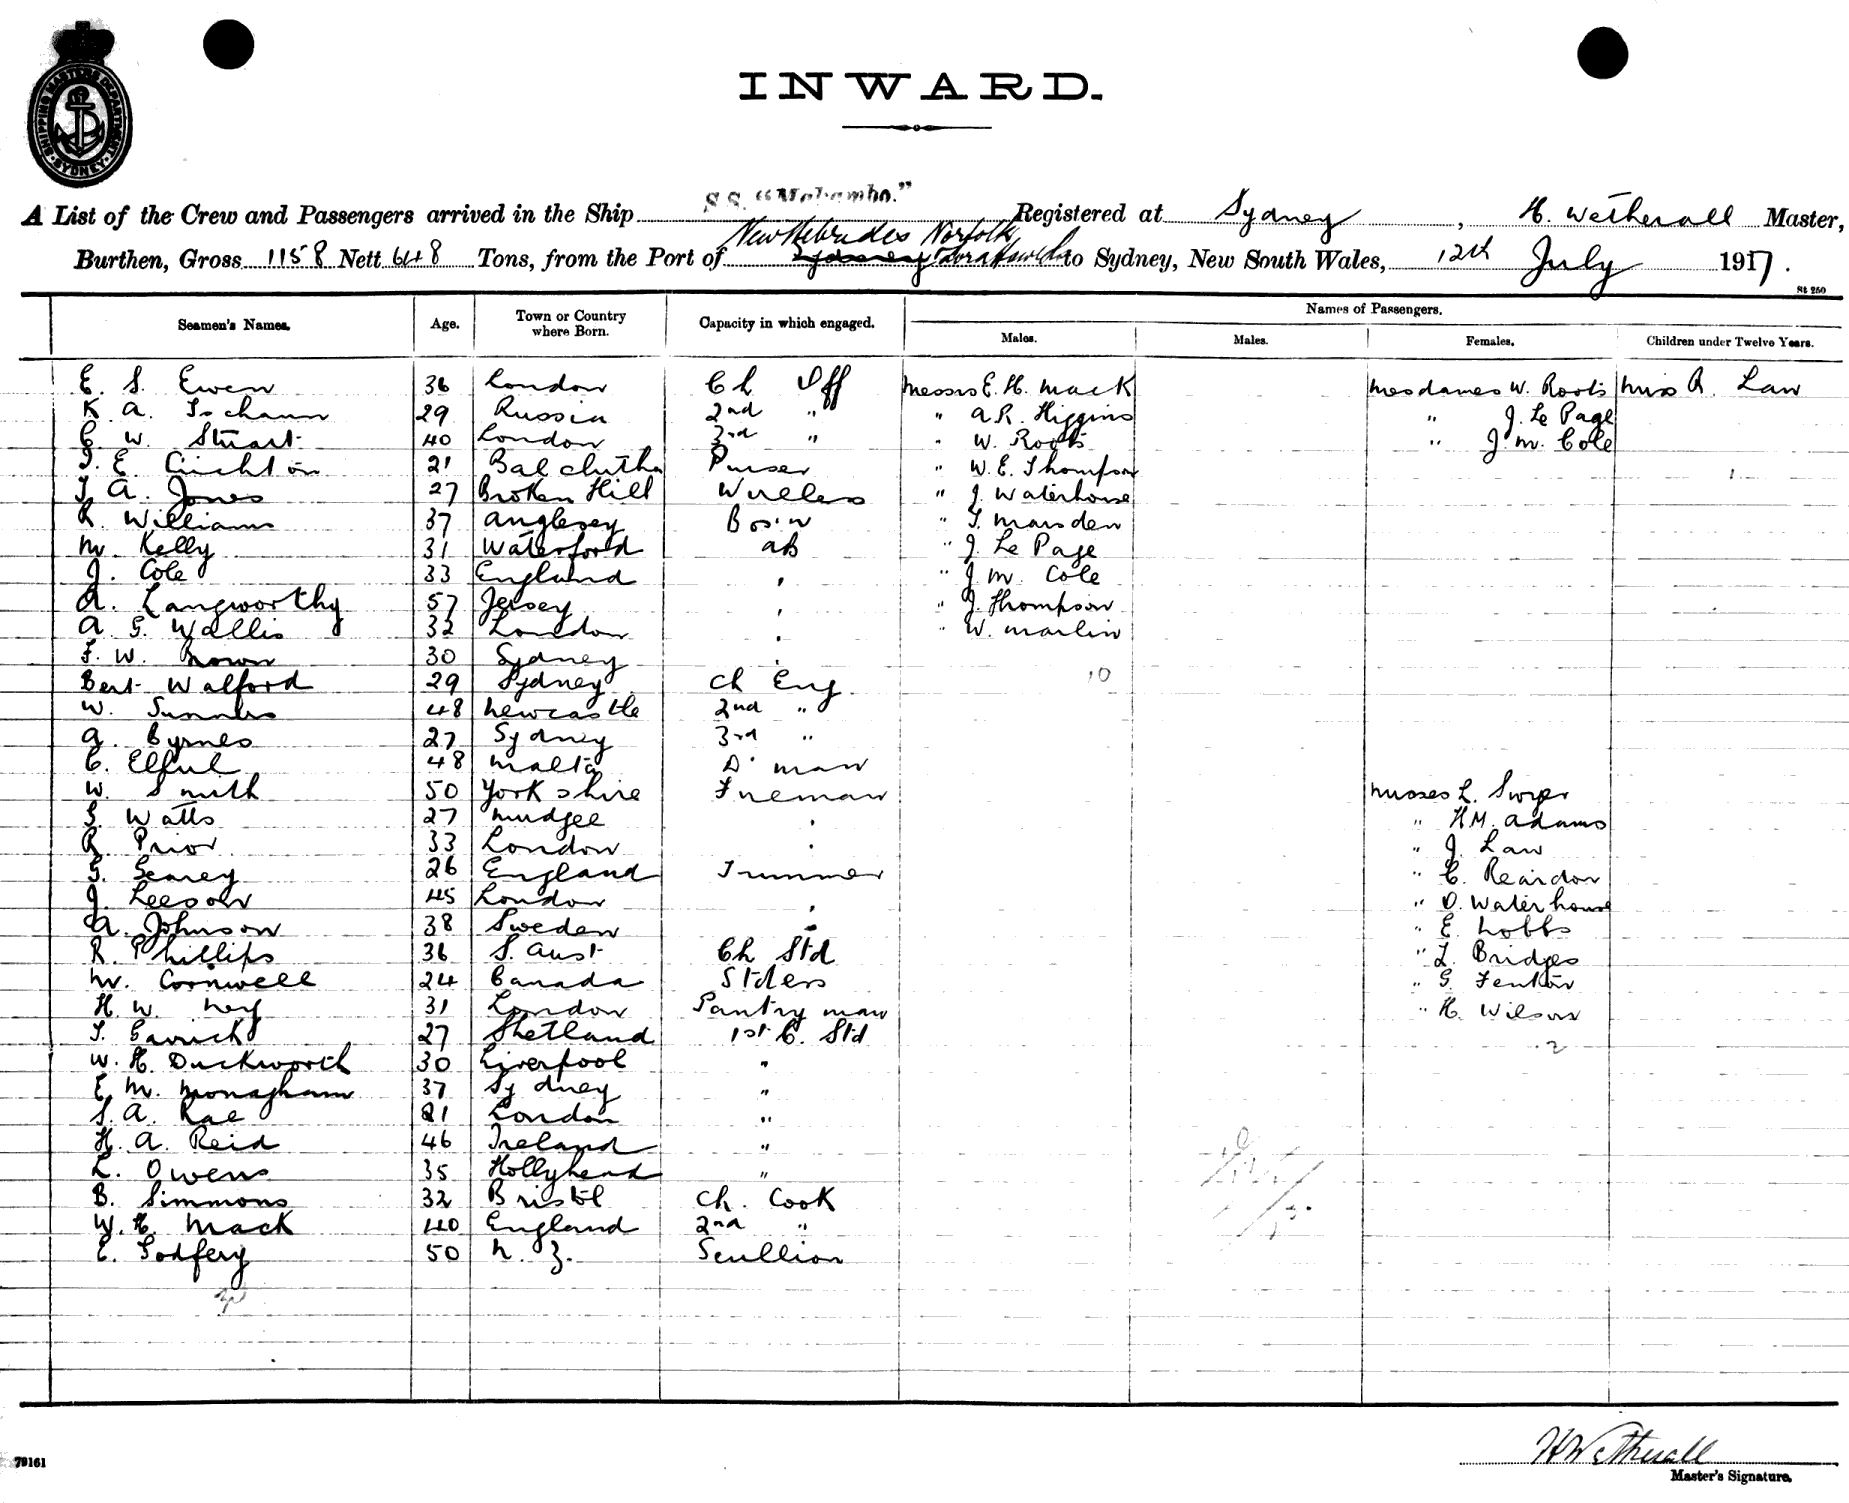 SHIPPING MASTERS DEPARTMENT · SYDNEY ·
INWARD.
A List of the Crew and Passengers arrived in the Ship S.S. "Makambo." Registered at Sydney, H. Wetherall Master,
Burthen, Gross 1158 Nett 648 Tons, from the Port of New Hebrides Norfolk Sydney to Sydney, New South Wales, 12th July 1917.
St 250
Seamen's Names. Age. Town or Country where Born. Capacity in which engaged. Names of Passengers.
Males. Males. Females. Children under Twelve Years.
E. S. Ewen 36 London Ch Off Messrs E. H. Mack Mesdames W. Roots Miss R. Law
K. A. 29 Russia 2nd " " A. R. Higgins " J. Le Page
C. W. Stuart 40 London 3rd " " W. Roots " J. M. Cole
J. E. Crichton 21 Balclutha Purser " W. E. Thompson 1
J. A. Jones 27 Broken Hill Wireless " J. Waterhouse
R. Williams 37 Anglesey Bos'n " T. Marsden
M. Kelly 31 Waterford AB " J. Le Page
J. Cole 33 England " " J. M. Cole
A. Langworthy 57 Jersey " " J. Thompson
A. G. Wallis 32 London " " W. Martin
F. W. Brown 30 Sydney "
Bert Walford 29 Sydney Ch Eng 10
W. 48 Newcastle 2nd "
A. Byrnes 27 Sydney 3rd "
C. Elful 48 Malta D'man
W. Smith 50 Yorkshire Fireman Misses L.
G. Watts 27 Mudgee " " H. M. Adams
R. Prior 33 London " " J. Law
G. 26 England Trimmer " C. Reardon
J. Leeson 45 London " " D. Waterhouse
A. Johnson 38 Sweden " " E. Hobbs
R. Phillips 36 S. Aust Ch Std " L. Bridges
M. Cornwell 24 Canada Stdess " G. Fenton
H. W. Ney 31 London Pantry man " H. Wilson
T. Garrick 27 Shetland 1st C. Std 2
W. H. Duckworth 30 Liverpool "
E. M. Monagham 37 Sydney "
S. A. Rae 21 London "
H. A. Reid 46 Ireland "
L. Owens 35 Hollyhead "
B. Simmons 32 Bristol Ch. Cook
W. H. Mack 40 England 2nd "
E. Godfery 50 N. Z. Scullion
H Wetherall
79161
Master's Signature.